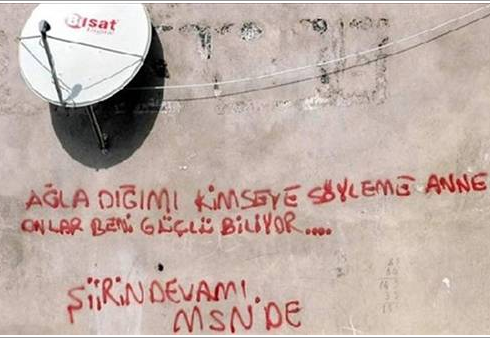 Bisat
AĞLA DIĞIMI KİMSEYE SÖYLEME ANNE
ONLAR BENİ GÜÇLÜ BİLİYOR....
ŞİİRİN DEVAMI
MSN'DE